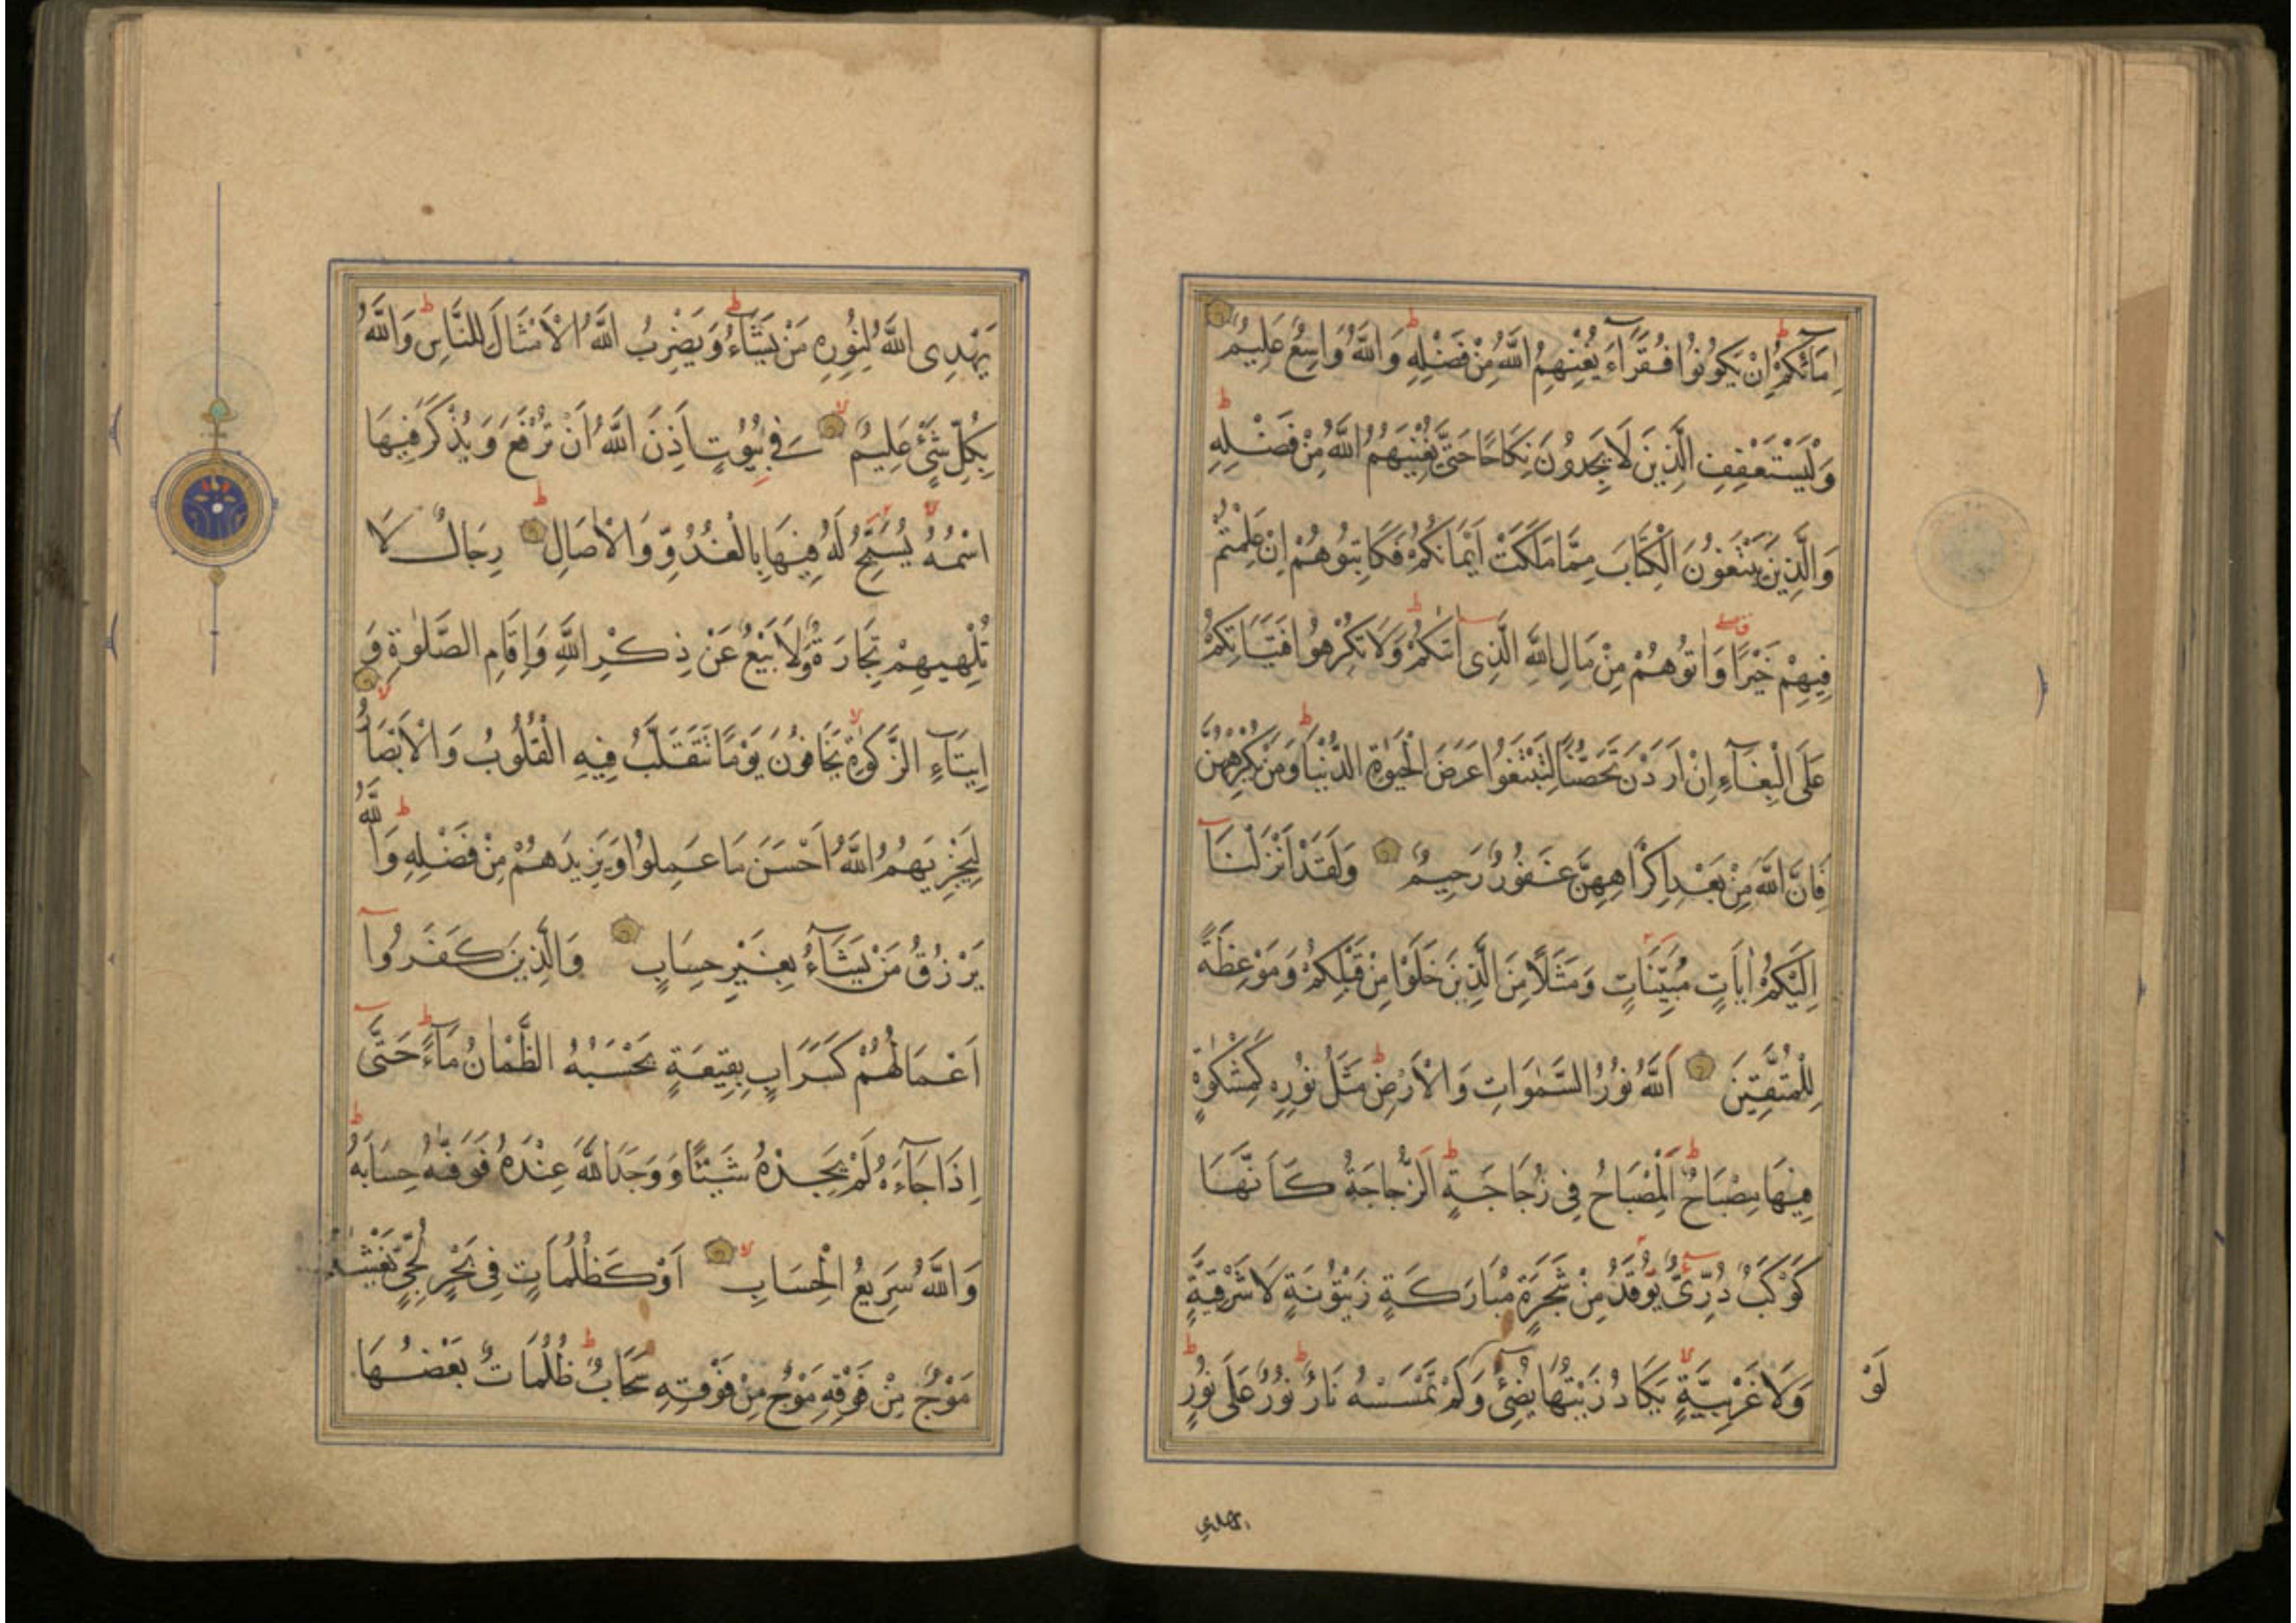 اِمَآئِكُمْ اِنْ يَكُونُوا فُقَرَآءَ يُغْنِهِمُ اللّٰهُ مِنْ فَضْلِهِ وَاللّٰهُ وَاسِعٌ عَلِيمٌ
وَلْيَسْتَعْفِفِ الَّذِينَ لَا يَجِدُونَ نِكَاحًا حَتّٰى يُغْنِيَهُمُ اللّٰهُ مِنْ فَضْلِهِ
وَالَّذِينَ يَبْتَغُونَ الْكِتَابَ مِمَّا مَلَكَتْ اَيْمَانُكُمْ فَكَاتِبُوهُمْ اِنْ عَلِمْتُمْ
فِيهِمْ خَيْرًا وَاٰتُوهُمْ مِنْ مَالِ اللّٰهِ الَّذِى اٰتٰىكُمْ وَلَا تُكْرِهُوا فَتَيَاتِكُمْ
عَلَى الْبِغَآءِ اِنْ اَرَدْنَ تَحَصُّنًا لِتَبْتَغُوا عَرَضَ الْحَيٰوةِ الدُّنْيَا وَمَنْ يُكْرِهْهُنَّ
فَاِنَّ اللّٰهَ مِنْ بَعْدِ اِكْرَاهِهِنَّ غَفُورٌ رَحِيمٌ وَلَقَدْ اَنْزَلْنَآ
اِلَيْكُمْ اٰيَاتٍ مُبَيِّنَاتٍ وَمَثَلًا مِنَ الَّذِينَ خَلَوْا مِنْ قَبْلِكُمْ وَمَوْعِظَةً
لِلْمُتَّقِينَ اَللّٰهُ نُورُ السَّمٰوَاتِ وَالْاَرْضِ مَثَلُ نُورِهِ كَمِشْكٰوةٍ
فِيهَا مِصْبَاحٌ اَلْمِصْبَاحُ فِى زُجَاجَةٍ اَلزُّجَاجَةُ كَاَنَّهَا
كَوْكَبٌ دُرِّىٌّ يُوقَدُ مِنْ شَجَرَةٍ مُبَارَكَةٍ زَيْتُونَةٍ لَا شَرْقِيَّةٍ
وَلَا غَرْبِيَّةٍ يَكَادُ زَيْتُهَا يُضِىٓءُ وَلَمْ تَمْسَسْهُ نَارٌ نُورٌ عَلٰى نُورٍ
لَوْ
يهدي
يَهْدِى اللّٰهُ لِنُورِهِ مَنْ يَشَآءُ وَيَضْرِبُ اللّٰهُ الْاَمْثَالَ لِلنَّاسِ وَاللّٰهُ
بِكُلِّ شَىْءٍ عَلِيمٌ فِى بُيُوتٍ اَذِنَ اللّٰهُ اَنْ تُرْفَعَ وَيُذْكَرَ فِيهَا
اسْمُهُ يُسَبِّحُ لَهُ فِيهَا بِالْغُدُوِّ وَالْاٰصَالِ رِجَالٌ لَا
تُلْهِيهِمْ تِجَارَةٌ وَلَا بَيْعٌ عَنْ ذِكْرِ اللّٰهِ وَاِقَامِ الصَّلٰوةِ وَ
اِيتَآءِ الزَّكٰوةِ يَخَافُونَ يَوْمًا تَتَقَلَّبُ فِيهِ الْقُلُوبُ وَالْاَبْصَارُ
لِيَجْزِيَهُمُ اللّٰهُ اَحْسَنَ مَا عَمِلُوا وَيَزِيدَهُمْ مِنْ فَضْلِهِ وَاللّٰهُ
يَرْزُقُ مَنْ يَشَآءُ بِغَيْرِ حِسَابٍ وَالَّذِينَ كَفَرُوٓا
اَعْمَالُهُمْ كَسَرَابٍ بِقِيعَةٍ يَحْسَبُهُ الظَّمْاٰنُ مَآءً حَتّٰٓى
اِذَا جَآءَهُ لَمْ يَجِدْهُ شَيْئًا وَوَجَدَ اللّٰهَ عِنْدَهُ فَوَفّٰيهُ حِسَابَهُ
وَاللّٰهُ سَرِيعُ الْحِسَابِ اَوْ كَظُلُمَاتٍ فِى بَحْرٍ لُجِّىٍّ يَغْشٰيهُ
مَوْجٌ مِنْ فَوْقِهِ مَوْجٌ مِنْ فَوْقِهِ سَحَابٌ ظُلُمَاتٌ بَعْضُهَا